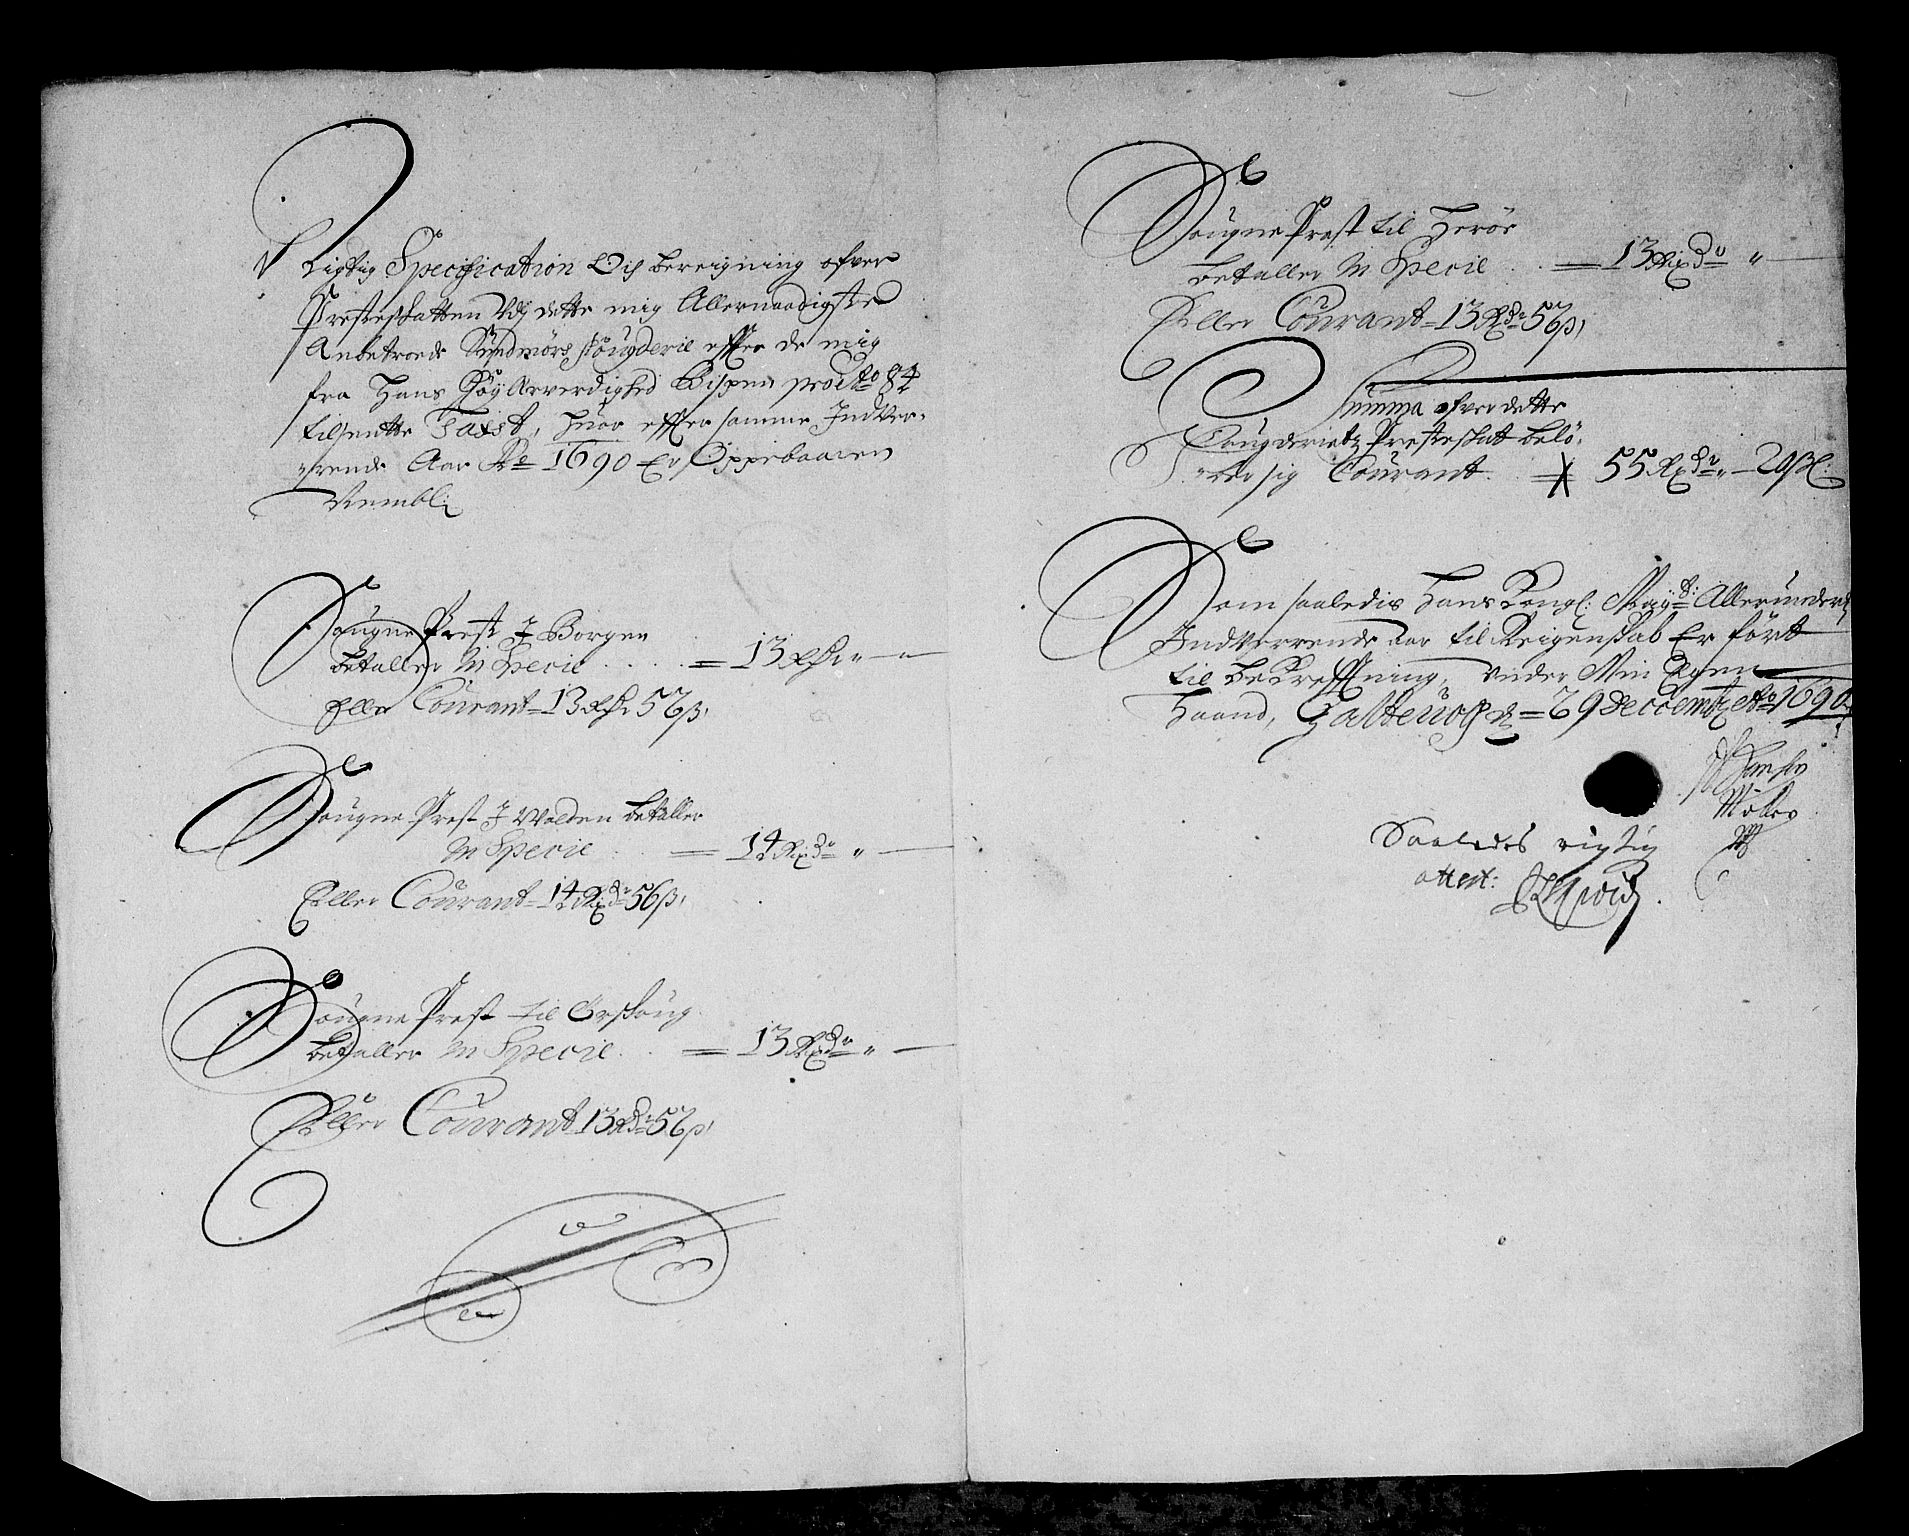 Rigtig Specification Och bereigning ofver
Presteskatten Udj dette mig Allernaadigste
Anbetroede Sundmørs fougderie effter de mig
fra Hans Høy Ærverdighed Bispen prod: Ao 84
tilsentte Taxt, huor effter samme Indver-
rende Aar No 1690 Er Oppebaaren
Nembl:
Sougne Prest I Borgen
betaller In Specie . . . . = 13 Rdr „ —
Eller Courant = 13 Rdr 56 ß,
Sougne Prest I Volden betaller
In Specie = 14 Rixdr „ —
Eller Courant = 14 Rixdr 56 ß,
Sougne Prest til Ørskoug
betaller In Specie . . = 13 Rixdr „ —
Eller Courant 13 Rdr 56 ß,
Sougne Prest til Herøe
betaller In Specie . . = 13 Rixdo „ —
Eller Courant = 13 Rdr 56 ß,
Summa ofver dette
fougderietz Presteskat belø-
ber sig Courant. = 55 Rixdr „ — 20 ßl:
Som saaledis Hans Kongl: Mayts: Allerunderd
Indverrende aar til Reigenskab Er ført
til bekrefftning, under Min Egen
Haand, = 29 Decembr Ao 1690
Saaledes rigtig
attest: